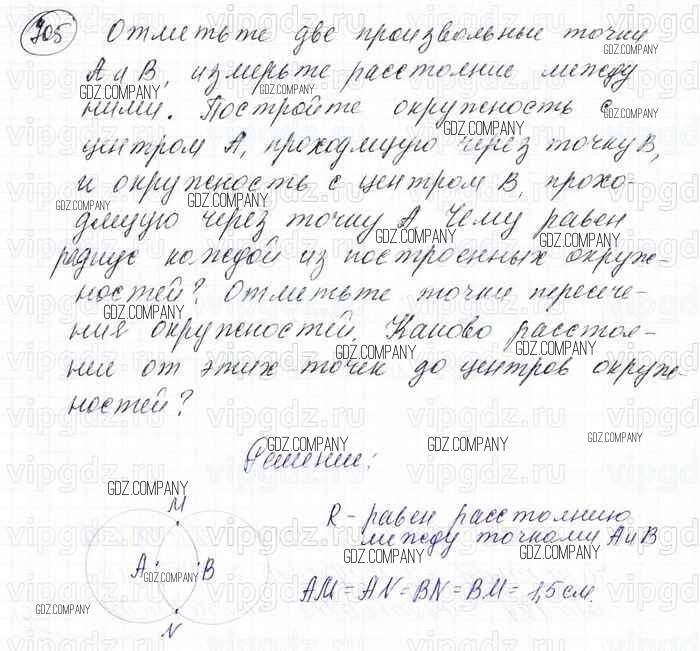 705 Отметьте две произвольные точки
А и В, измерьте расстояние между
ними. Постройте окружность с
центром А, проходящую через точку В,
и окружность с центром В, прохо-
дящую через точку А. Чему равен
радиус каждой из построенных окруж-
ностей? Отметьте точки пересече-
ния окружностей. Каково расстоя-
ние от этих точек до центров окруж-
ностей?
Решение:
M
A B
N
R - равен расстоянию
между точками А и В
AM = AN = BN = BM = 1,5 см.
GDZ.COMPANY
vipgdz.ru